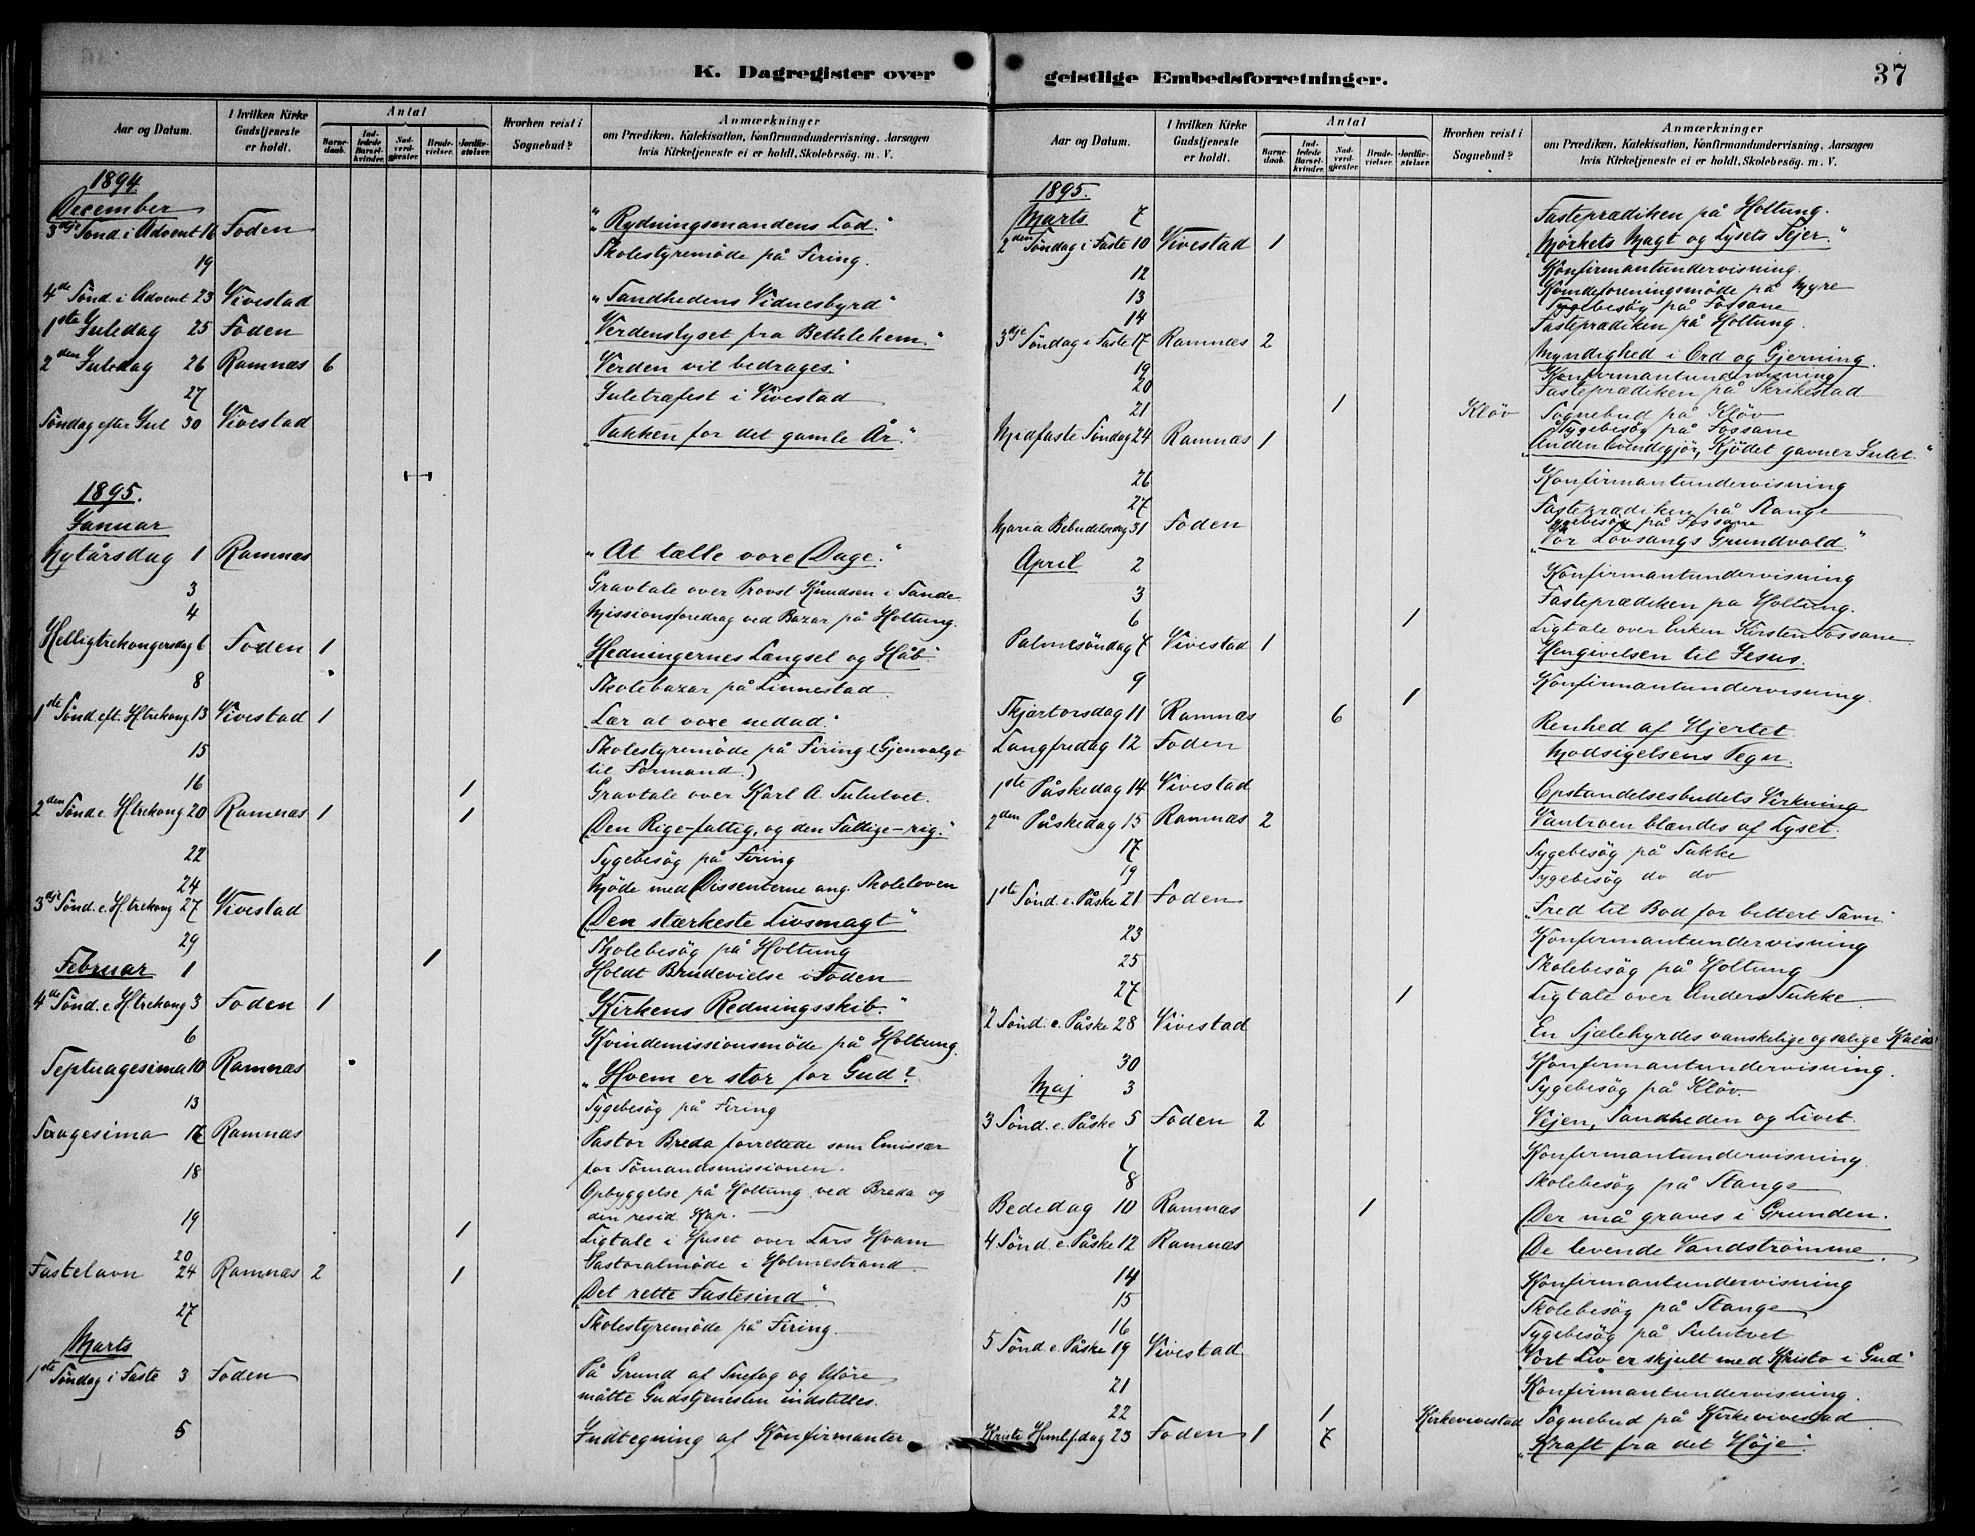 K. Dagregister over
Aar og Datum. I hvilken Kirke Gudstjeneste er holdt. Antal Barnedaab. Indledede Barselkvinder. Nadverdgjester. Brudevielser. Jordfæstelser. Hvorhen reist i Sognebud? Anmærkninger om Prædiken, Katekisation, Konfirmandundervisning, Aarsagen hvis Kirketjeneste ei er holdt, Skolebesög. m. V.
1894
December
3dje Sönd i Advent 16 Foden "Rydningsmandens Lod."
19 Skolestyremöde på Firing.
4de Sönd. i Advent 23 Vivestad "Sandhedens Vidnesbyrd"
1ste Juledag 25 Foden "Verdenslyset fra Bethlehem."
2den Juledag 26 Ramnæs 6 "Verden vil bedrages."
27 Juletræfest i Vivestad
Söndag efter Jul 30 Vivestad "Takken for det gamle År."
1895.
Januar
Nytårsdag 1 Ramnæs "At tælle vore Dage."
3 Gravtale over Provst Knudsen i Sande
4 Missionsforedrag ved Bazar på Holtung.
Helligtrekongersdag 6 Foden 1 "Hedningernes Længsel og Håb."
8 Skolebazar på Linnestad
1ste Sönd. eft. H.trekong. 13 Vivestad 1 Lær at voxe nedad."
15 Skolestyremöde på Firing (Gjenvalgt
til Formand.)
16 1 Gravtale over Karl A. Sulutvet.
2den Sönd e. H.trekong 20 Ramnæs 1 1 "Den Rige-fattig, og den Fattige-rig."
22 Sygebesög på Firing
24 Möde med Dissenterne ang. Skoleloven
3dje Sönd. e. H.trekong 27 Vivestad "Den stærkeste Livsmagt"
29 Skolebesög på Holtung
Februar 1 1 Holdt Brudevielse i Foden
4de Sönd. e. H.trekong 3 Foden 1 "Kirkens Redningsskib."
6 Kvindemissionsmöde på Holtung.
Septuagesima 10 Ramnæs "Hvem er stor for Gud?
13 Sygebesög på Firing
Sexagesima Ramnæs Pastor Breda forrettede som Emissær
for Sömandsmissionen.
18 Opbyggelse på Holtung ved Breda og
den resid. Kap.
19 1 Ligtale i Huset over Lars Hvam
20 Pastoralmöde i Holmestrand
Fastelavn 24 Ramnæs 2 1 "Det rette Fastesind"
27 Skolestyremöde på Firing.
Marts
1ste Söndag i Faste 3 Foden På Grund af Snefog og Uföre
måtte Gudstjenesten indstilles.
5 Indtegning af Konfirmanter
geistlige Embedsforretninger. 37
Aar og Datum. I hvilken Kirke Gudstjeneste er holdt. Antal Barnedaab. Indledede Barselkvinder. Nadverdgjester. Brudevielser. Jordfæstelser. Hvorhen reist i Sognebud? Anmærkninger om Prædiken, Katekisation, Konfirmandundervisning, Aarsagen hvis Kirketjeneste ei er holdt, Skolebesög. m. V.
1895.
Marts 7 Fasteprædiken på Holtung.
2den Söndag i Faste 10 Vivestad 1 "Mörkets Magt og Lysets Sejer."
12 Konfirmantundervisning.
13 Kvindeforeningsmöde på Myre
Sygebesög på Fossane
14 Fasteprædiken på Holtung.
3dje Söndag i Faste 17 Ramnæs 2 Myndighed i Ord og Gjerning.
19 Konfirmantundervisning
20 Fasteprædiken på Skrikestad
21 1 Klöv Sognebud på Klöv
Sygebesög på Fossane
Midfaste Söndag 24 Ramnæs 1 "Anden levendegjör, Kjödet gavner Intet."
26 Konfirmantundervisning
27 Fasteprædiken på Stange
Sygebesög på Fossane
Maria Bebudelsesdag 31 Foden "Vor Lovsangs Grundvold."
April 2 Konfirmantundervisning
3 Fasteprædiken på Holtung.
6 1 Ligtale over Enken Kirsten Fossane
Palmesöndag 7 Vivestad 1 Hengivelsen til Jesus.
9 1 Konfirmantundervisning.
Skjærtorsdag 11 Ramnæs 6 Renhed af Hjertet
Langfredag 12 Foden Modsigelsens Tegn.
1ste Påskedag 14 Vivestad Opstandelsesbudets Virkning
2den Påskedag 15 Ramnæs 2 Vantroen blændes af Lyset.
17 Sygebesög på Sukke
19 Sygebesög do do
1ste Sönd. e. Påske 21 Foden "Fred til Bod for bittert Savn"
23 Konfirmantundervisning
25 Skolebesög på Holtung
27 1 Ligtale over Anders Sukke
2 Sönd. e. Påske 28 Vivestad En Sjælehyrdes vanskelige og salige Kald
30 Konfirmantundervisning.
Maj 3 Sygebesög på Klöv.
3 Sönd. e. Påske 5 Foden 2 Vejen, Sandheden og Livet.
7 Konfirmantundervisning.
8 Skolebesög på Stange
Bededag 10 Ramnæs 1 Der må graves i Grunden.
4 Sönd. e. Påske 12 Ramnæs De levende Vandströmme.
14 Konfirmantundervisning
15 Skolebesög på Stange
16 Sygebesög på Sulutvet
5 Sönd e. Påske 19 Vivestad Vort Liv er skjult med Kristo i Gud."
21 Konfirmantundervisning.
22 1 Kirkevivestad Sognebud på Kirkevivestad
Kristi Himlf.dag 23 Foden 1 7 "Kraft fra det Höje".